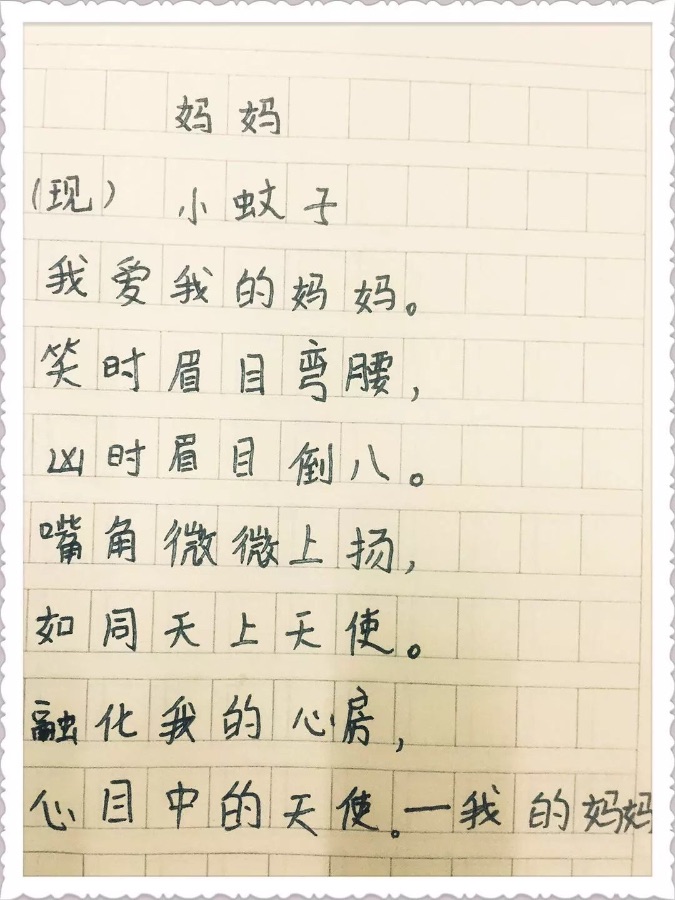 妈妈
(现) 小蚊子
我爱我的妈妈。
笑时眉目弯腰,
凶时眉目倒八。
嘴角微微上扬,
如同天上天使。
融化我的心房,
心目中的天使。—我的妈妈